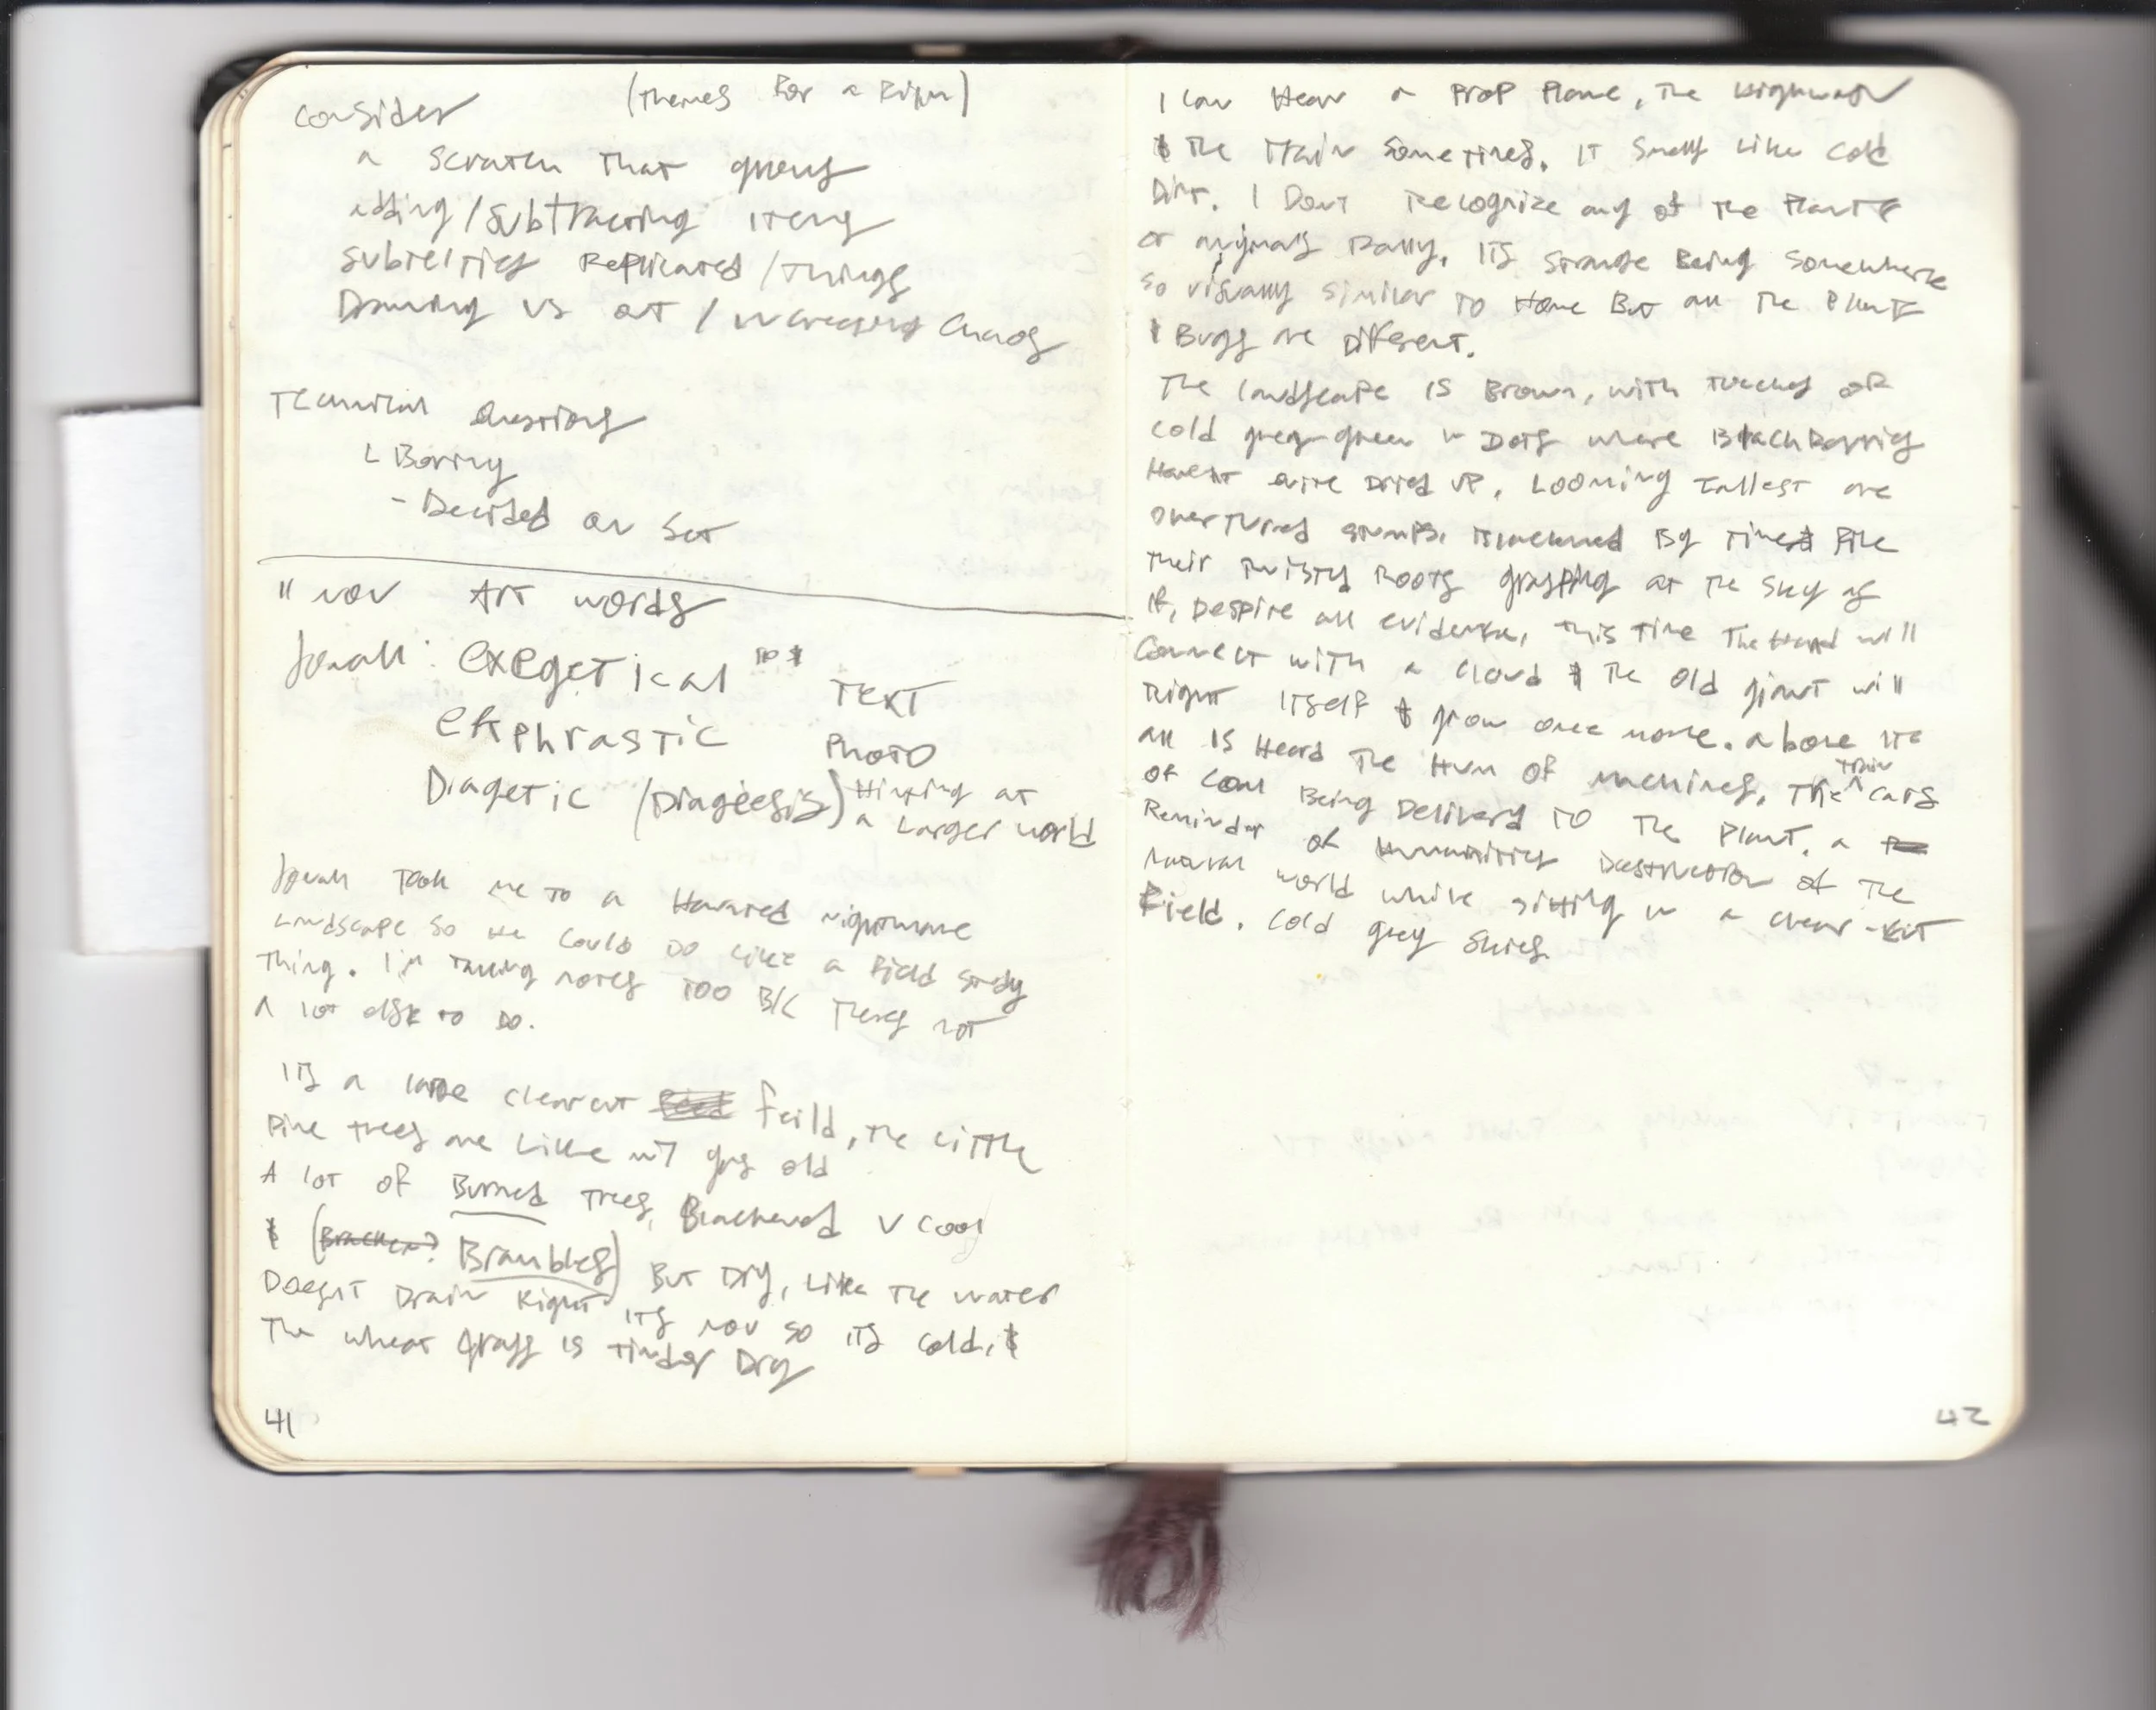 Consider (Themes for a Film)
a scratch that grows
adding/subtracting items
subtelties Replicated / things
Drawing vs art / increasing Chaos
Technical Questions
L Boring
- Decided on Set
11 nov Art words
exegetical TEXT
ekphrastic PHOTO
Diagetic (Diageesis) Hinting at
a Larger world
took me to a Haunted nightmare
Landscape so we could do like a field study
Thing. I'm taking notes too B/C Theres not
A lot else to do.
Its a large clearcut feild, the little
Pine trees are like 7 yrs old
A lot of Burned Trees, Blackened V Cool
& (Bracken? Brambles) But Dry, like the water
Doesnt Drain Right. Its nov so its cold, &
The wheat grass is tinder Dry
41
I can Hear a Prop Plane, The Highway
& The train sometimes. It smells like cold
Dirt. I Dont recognize any of the Plants
or animals really. Its strange Being somewhere
so visually similar to Home But all the Plants
& Bugs are Different.
The landscape is Brown, with touches of
cold grey-green in Dots where Blackberries
Havent quite Dried up. Looming tallest are
overturned stumps. Blackened By Fire
their twisty Roots grasping at the sky as
if, Despite all evidence, this time The Hand will
connect with a cloud & the old giant will
Right itself & grow once more. above it
all is Heard The Hum of machines. The train cars
of coal Being Deliverd to The Plant. a
Reminder of Humanities Destruction of the
natural world while sitting in a clear-cut
Field. Cold grey skies.
42